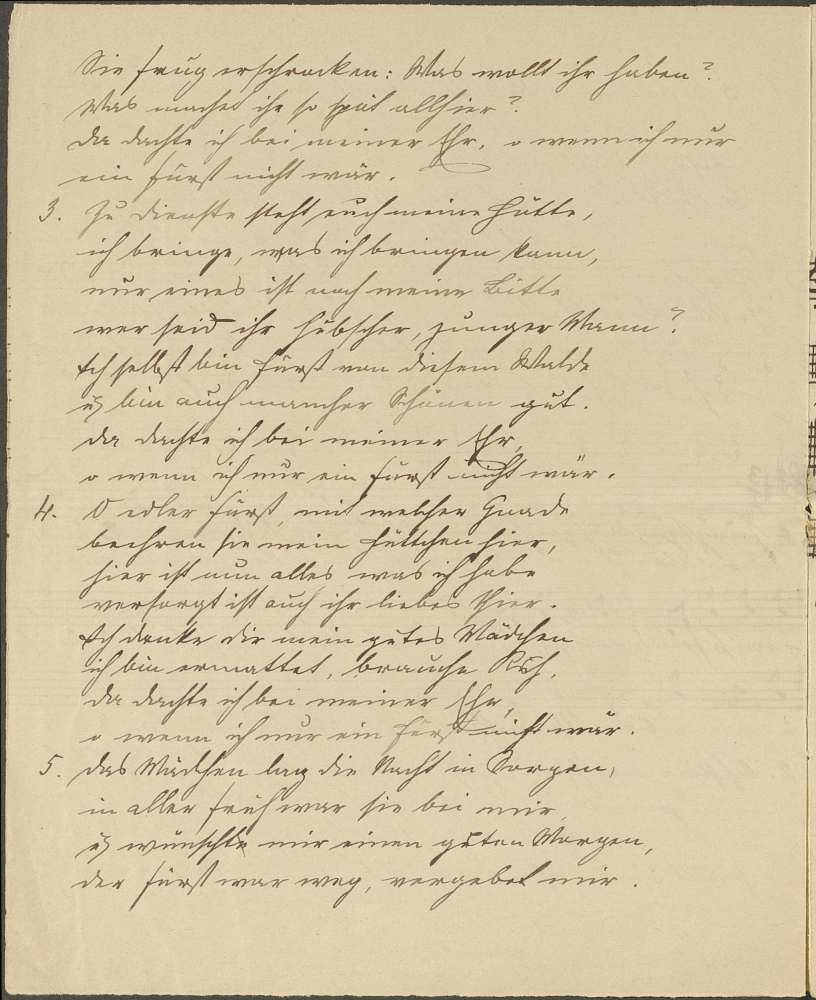 Sie frug erschrocken: Was wollt ihr haben?
Was machet ihr so spät allhier?
Da dachte ich bei meiner Ehr, o wenn ich nur
ein Fürst nicht wär.
3. Zu Dienste steht euch meine Hütte,
ich bringe, was ich bringen kann,
nur eines ist noch meine Bitte
wer seid ihr hübscher, junger Mann?
Ich selbst bin Fürst von diesem Walde
u bin auch mancher Schönen gut.
Da dachte ich bei meiner Ehr,
o wenn ich nur ein Fürst nicht wär.
4. O edler Fürst, mit welcher Gnade
beehren sie mein Hüttchen hier,
hier ist nun alles was ich habe
versorgt ist auch ihr liebes Thier.
Ich danke dir mein gutes Mädchen
ich bin ermattet, brauche Ruh,
da dachte ich bei meiner Ehr,
o wenn ich nur ein Fürst nicht wär.
5. Das Mädchen lag die Nacht in Sorgen,
in aller früh war sie bei mir,
u wünschte mir einen guten Morgen,
der Fürst war weg, vergebet mir.